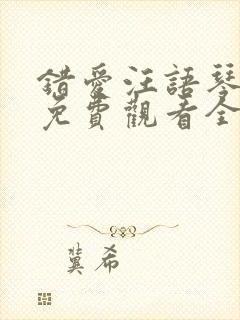 錯愛汪語琴
免費觀看全
冀希